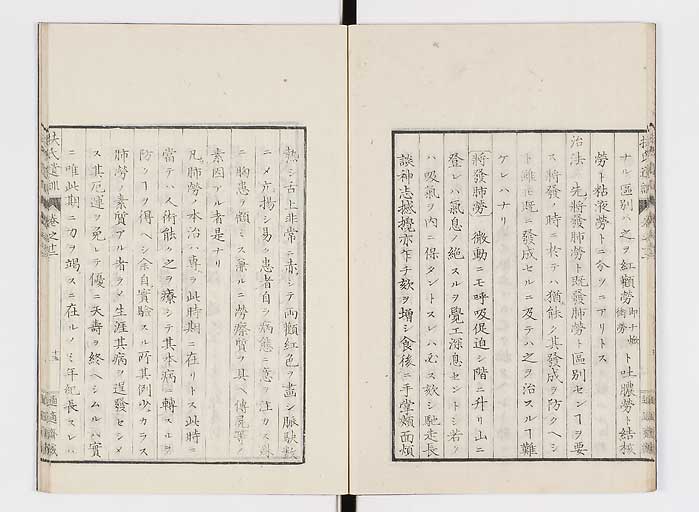 ナル區別ハ之ヲ紅顴勞ト吐膿勞ト結核
勞ト粘液勞トニ分ツニアリトス
治法 先將發肺勞ト既發肺勞ト區別センヿヲ要
ス將發ノ時ニ於テハ猶能ク其發成ヲ防クヘシ
ト雖モ既ニ發成セルニ及テハ之ヲ治スルヿ難
ケレハナリ
將發肺勞 微動ニモ呼吸促迫シ階ニ升リ山ニ
登レハ氣息ノ絶スルヲ覺エ深息セントシ若クハ
吸氣ヲ内ニ保タントスレハ必ス欬シ馳走長
談神志感亦乍チ欬ヲ増シ食後ニ手掌頰面煩
熱シ舌上非常ニ赤シテ兩顴紅色ヲ畫シ脈駃數
ニメ亢揚シ易ク患者自ラ病態ニ意ヲ注カス
ニ胸患ヲ顧ミス兼ルニ勞瘵質ヲ具ヘ傳屍等ノ
素因アル者是ナリ
凡肺勞ノ水治ハ專ラ此時期ニ在リトス此時ニ
當テハ人術能ク之ヲ療シテ其本病ニ轉スルヲ
防クヿヲ得ヘシ余自實驗スル所其例少カラス
肺勞ノ素質アル者ヲメ生涯其病ヲ逞發セシメ
ス其厄運ヲ免レテ優ニ天壽ヲ終ヘシムルハ實
ニ唯此期ニ力ヲ竭スニ在ルノミ年紀長スレハ
扶氏遺訓 卷之十二
適適齋藏